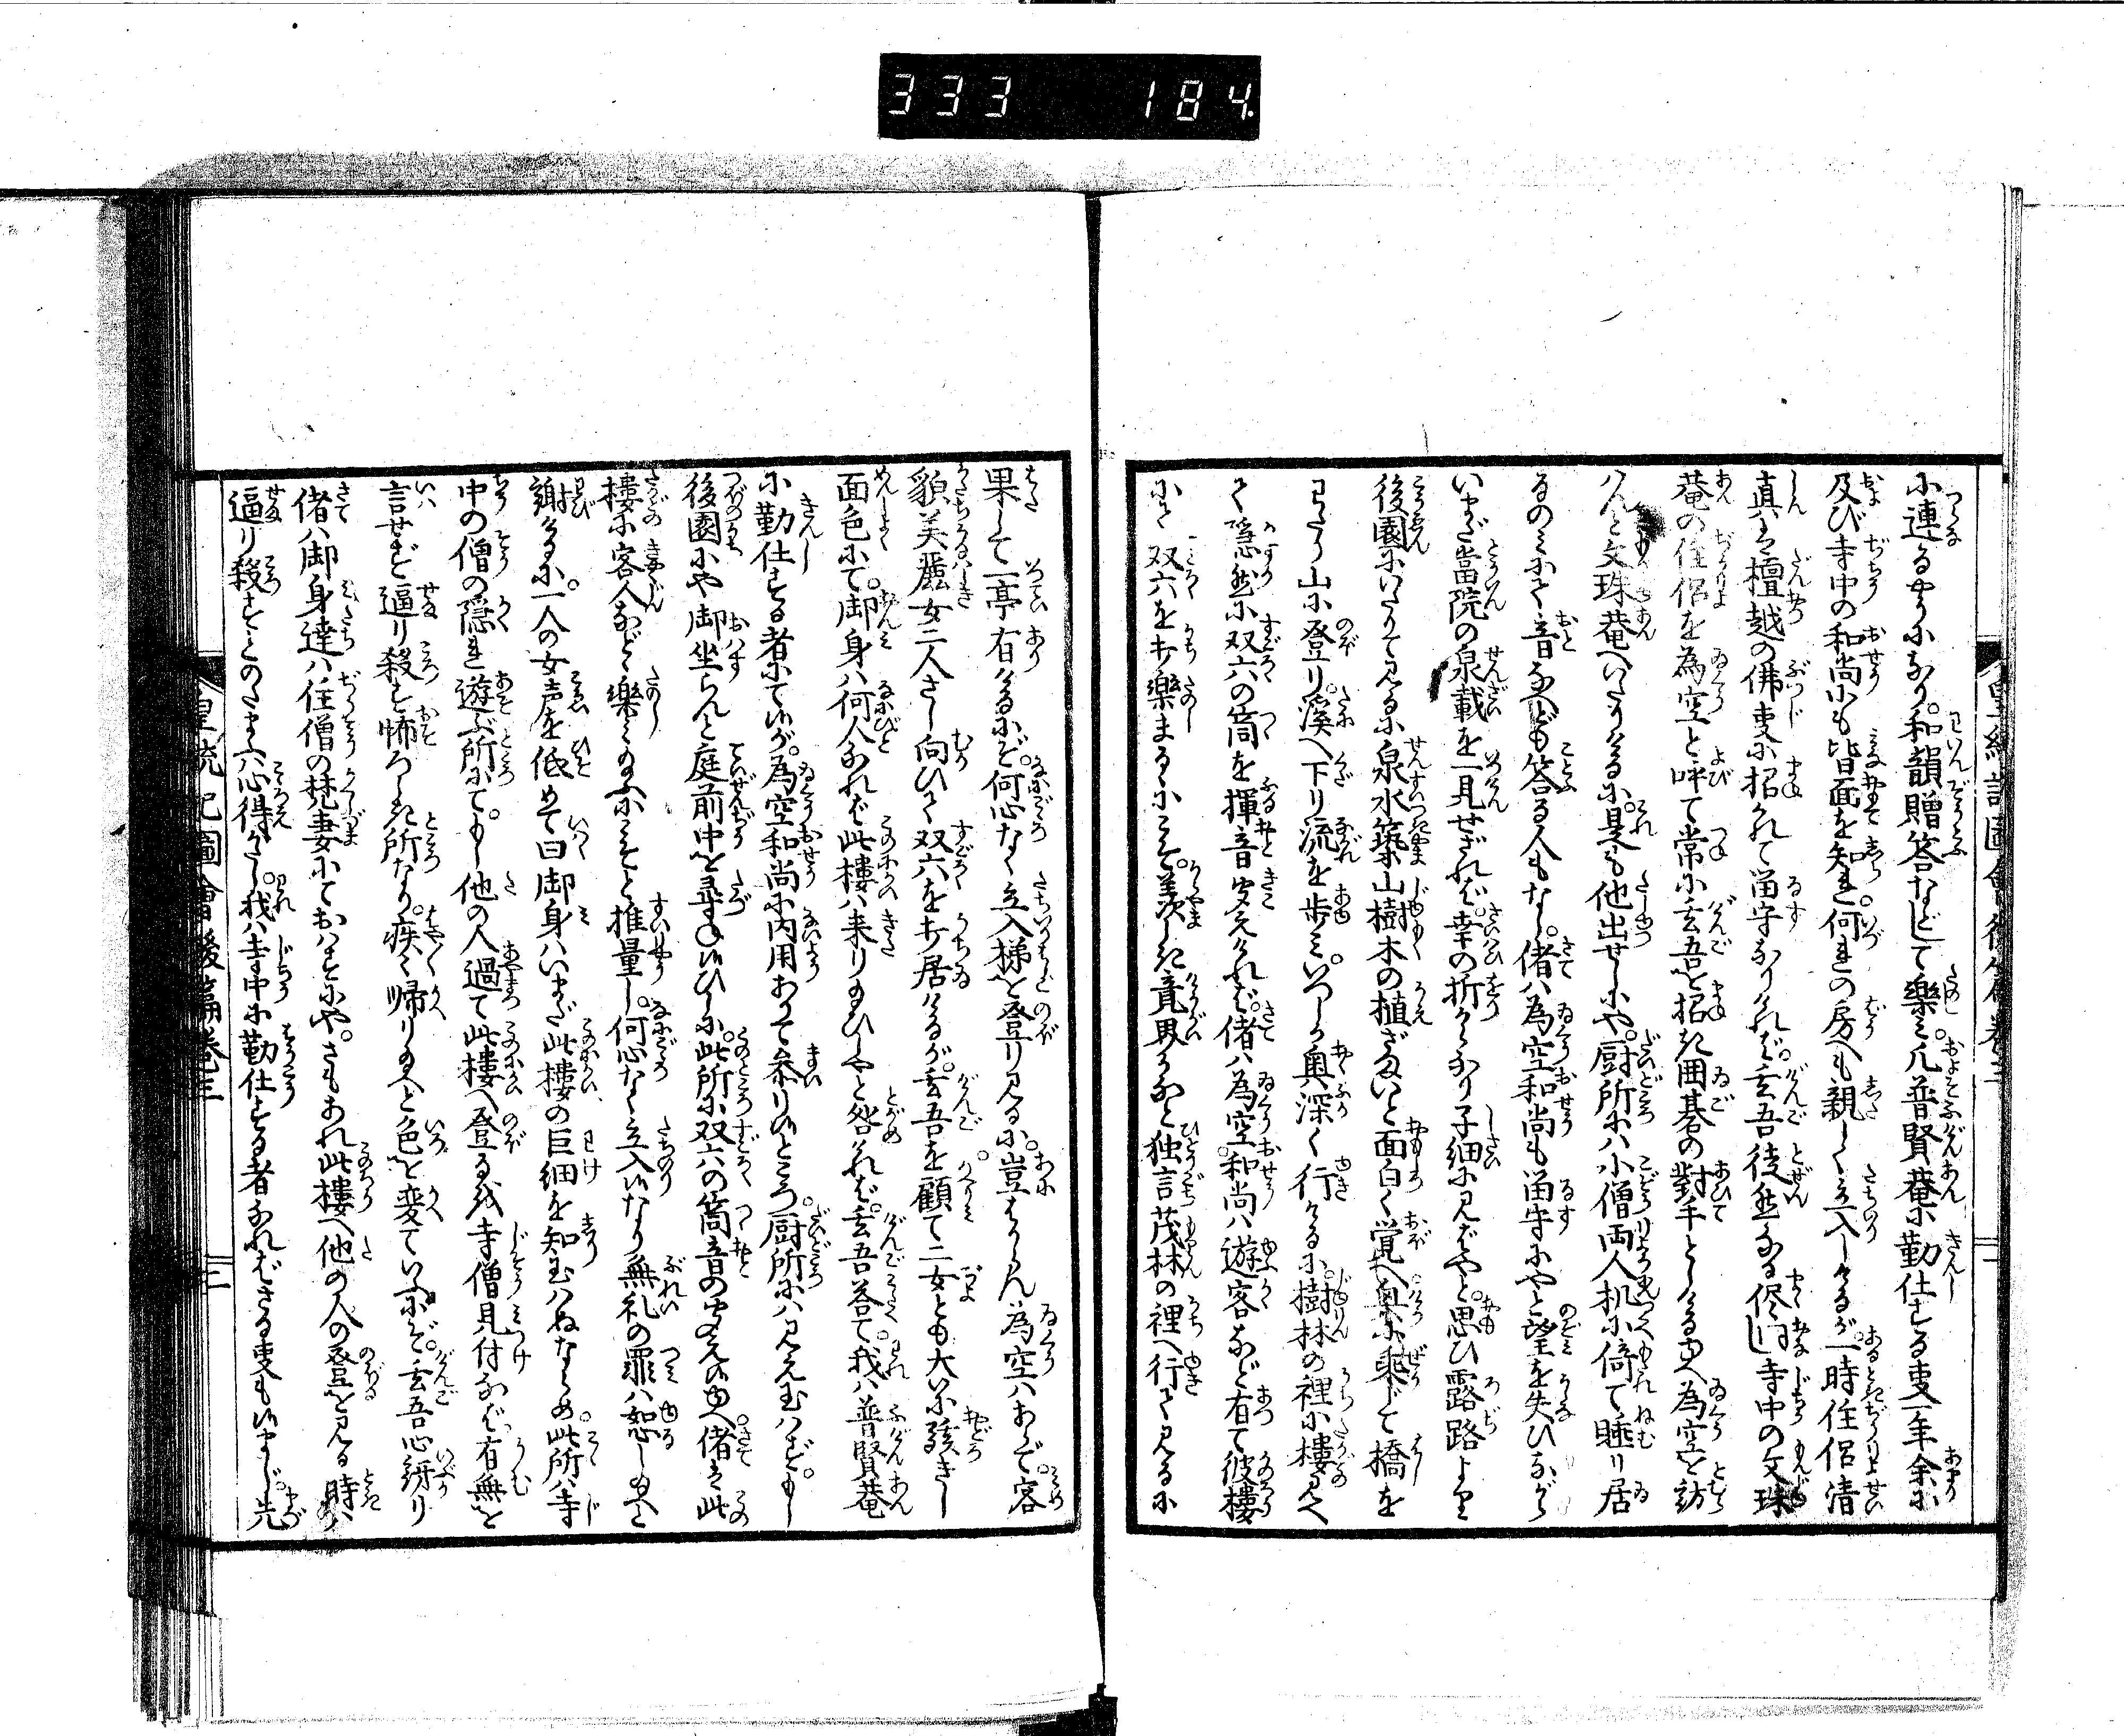 333 184
に連るやうになり。和韻贈答などして樂み。凡普賢菴に勤仕する叓一年余に
及び寺中の和尚にも皆面を知れ何れの房へも親しく立入しけるが。一時住侶清
真は檀越の佛叓に招れて畄守なりければ。玄吾徒然なる侭寺中の文珠
菴の住侶を為空と呼て常に玄吾を招き囲碁の對手としける由へ為空を訪
はんと文珠菴へいたりけるに。是も他出せしにや。厨所には小僧両人机に倚て睡り居
るのみにて音なへども答る人もなし。偖は為空和尚も畄守にやと望を失ひながら
いまだ當院の泉載を一見せざれば。幸の折からなり子細に見ばやと。思ひ露路より
後園にいたりて見るに泉水築山樹木の植ざまいと面白く覚へ奥に乗じて橋を
わたり山に登り。溪へ下り流を歩み。いつしか奥深く行けるに。樹林の裡に樓見へ
て隠然に双六の筒を揮音聞えければ。偖は為空和尚は遊客など有て彼樓
にて双六を打樂まるゝにこそ。羨しき竟界かなと独言茂林の裡へ行て見るに
果して一亭有けるにぞ。何心なく立入梯を登り見るに。豈はからん為空はあらで。容
貌美麗女二人さし向ひて双六を打居けるが。玄吾を顧て二女とも大に駭きし
面色にて。御身は何人なれば此樓は来り給ひしやと咎ければ。玄吾答て。我は普賢菴
に勤仕する者にて候が。為空和尚に内用あつて参り候ところ。厨所には見え玉はず。もし
後園にや御坐らんと庭前中を尋ね候ひしに。此所に双六の筒音の聞え候由へ偖は此
樓に客人などゝ樂み給ふにこそと推量し。何心なく立入候なり無礼の罪は恕し給へと
謝けるに。一人の女声を低めて曰御身はいまだ此樓の巨細を知玉はぬならめ。此所は寺
中の僧の隠れ遊ぶ所にて。もし他の人過て此樓へ登るを寺僧見付なば。有無を
言せず逼り殺す怖ろしき所なり。疾く帰り給へと色を変ていふにぞ。玄吾心訝り
偖は御身達は住僧の梵妻にておはすにや。さもあれ此樓へ他の人の登を見る時は
逼り殺すとのたまふ心得がたし。我は寺中に勤仕する者なればさる叓も候まじ。先
皇統記圖會後篇卷三
三